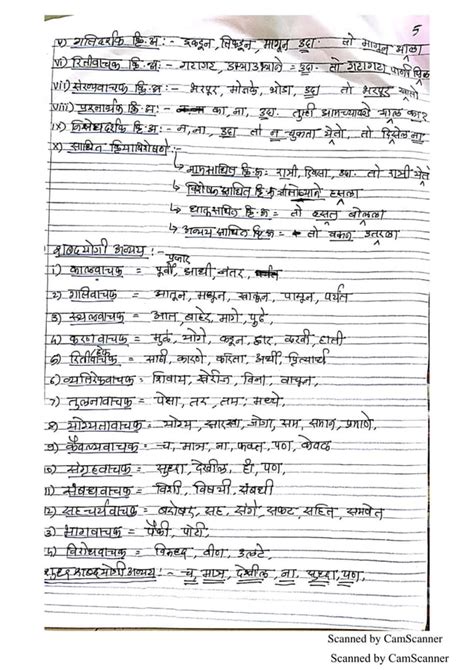 5
v) गतिदर्शक क्रि.अ:- इकडून, तिकडून, मागून उदा. तो मागून आला
vi) रितीवाचक क्रि.अ:- गटागट, उदा. तो गटागटा पाणी पितो
vii) संख्यावाचक क्रि.अ:- भरपूर, मोजके, थोडा, उदा तो भरपूर
viii) प्रश्नार्थक क्रि.अ:- का, ना, उदा. तुम्ही आमच्याकडे याल का
ix) निषेधदर्शक क्रि.अ:- न, ना, उदा तो न चुकता येतो, तो दिसेल ना
x) साधित क्रियाविशेषण:-
नामसाधित क्रि.अ= रात्री, दिवसा, उदा. तो रात्री येतो
विशेषण साधित क्रि.अ हसला
धातुसाधित क्रि.अ = तो हसत बोलला
अव्यय साधित क्रि.अ = तो वरून उतरला
शब्दयोगी अव्यय :- प्रकार
1) कालवाचक = पूर्वी, आधी, नंतर, पर्यंत
2) गतिवाचक = आतून, मधून, खालून, पासून, पर्यंत
3) स्थलवाचक = आत, बाहेर, मागे, पुढे,
4) करणवाचक = मुळे, योगे, करून, द्वारा, करवी, हाती
5) हेतुवाचक = साठी, कारणे, करिता, अर्थी, प्रित्यर्थ
6) व्यतिरेकवाचक = शिवाय, खेरीज, विना, वाचून,
7) तुलनावाचक = पेक्षा, तर, तम, मध्ये,
8) योग्यतावाचक = योग्य, सारखा, जोगा, सम, समान, प्रमाणे,
9) कैवल्यवाचक = च, मात्र, ना, फक्त, पण, केवळ
10) संग्रहवाचक = सुद्धा, देखील, ही, पण,
11) संबंधवाचक = विशी, विषयी, संबंधी
12) सहचर्यवाचक = बरोबर, सह, संगे, सकट, सहित, समवेत
13) भागवाचक = पैकी, पोटी,
14) विरोधवाचक = विरुद्ध, वीण, उलटे,
शुद्ध शब्दयोगी अव्यय :- च, मात्र, देखील, ना, सुद्धा, पण,
Scanned by CamScanner
Scanned by CamScanner